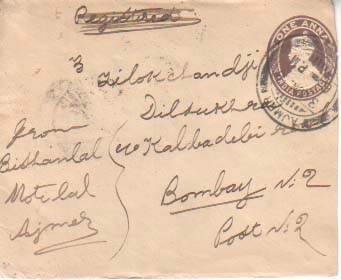 Registered
ONE ANNA
INDIA POSTAGE
Tilokchandji
Dilsukhrai
c/o Kalbadebi
Bombay No 2
Post No 2
From
Bishanlal
Motilal
Ajmer